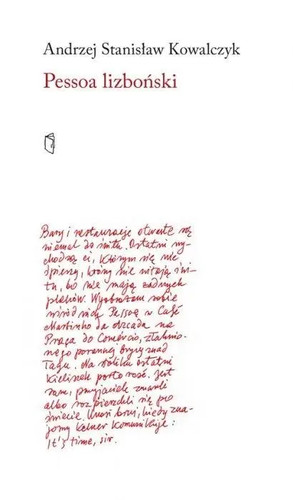 Andrzej Stanisław Kowalczyk
Pessoa lizboński
Bary i restauracje otwarte są
niemal do świtu. Ostatni wy-
chodzą ci, którym się nie
śpieszy, którzy nie witają świ-
tu, bo nie mają żadnych
planów. Wyobrażam sobie
wśród nich Pessoę w Café
Martinho da Arcada na
Praça do Comércio,
nego poranną bryzą znad
Tagu. Na stoliku ostatni
kieliszek porto rosé. Jest
sam, przyjaciele zmarli
albo rozpierzchli się po
świecie. Unosi brwi, kiedy zna-
jomy kelner komunikuje:
It's time, sir.